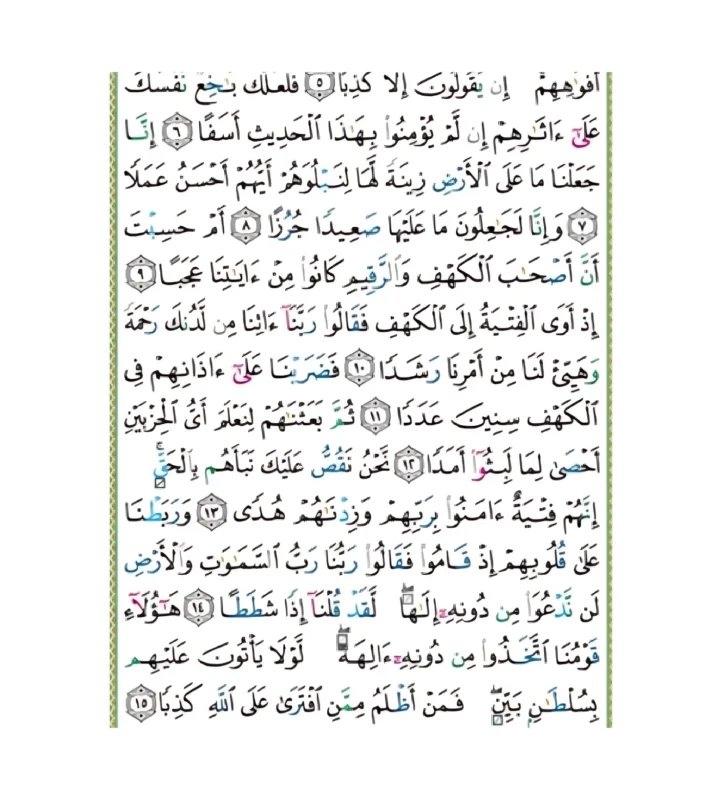 أَفْوَٰهِهِمْ إِن يَقُولُونَ إِلَّا كَذِبًا ٥ فَلَعَلَّكَ بَـٰخِعٌ نَّفْسَكَ
عَلَىٰٓ ءَاثَـٰرِهِمْ إِن لَّمْ يُؤْمِنُوا۟ بِهَـٰذَا ٱلْحَدِيثِ أَسَفًا ٦ إِنَّا
جَعَلْنَا مَا عَلَى ٱلْأَرْضِ زِينَةً لَّهَا لِنَبْلُوَهُمْ أَيُّهُمْ أَحْسَنُ عَمَلًا
٧ وَإِنَّا لَجَـٰعِلُونَ مَا عَلَيْهَا صَعِيدًا جُرُزًا ٨ أَمْ حَسِبْتَ
أَنَّ أَصْحَـٰبَ ٱلْكَهْفِ وَٱلرَّقِيمِ كَانُوا۟ مِنْ ءَايَـٰتِنَا عَجَبًا ٩
إِذْ أَوَى ٱلْفِتْيَةُ إِلَى ٱلْكَهْفِ فَقَالُوا۟ رَبَّنَآ ءَاتِنَا مِن لَّدُنكَ رَحْمَةً
وَهَيِّئْ لَنَا مِنْ أَمْرِنَا رَشَدًا ١٠ فَضَرَبْنَا عَلَىٰٓ ءَاذَانِهِمْ فِى
ٱلْكَهْفِ سِنِينَ عَدَدًا ١١ ثُمَّ بَعَثْنَـٰهُمْ لِنَعْلَمَ أَىُّ ٱلْحِزْبَيْنِ
أَحْصَىٰ لِمَا لَبِثُوٓا۟ أَمَدًا ١٢ نَّحْنُ نَقُصُّ عَلَيْكَ نَبَأَهُم بِٱلْحَقِّ ۚ
إِنَّهُمْ فِتْيَةٌ ءَامَنُوا۟ بِرَبِّهِمْ وَزِدْنَـٰهُمْ هُدًى ١٣ وَرَبَطْنَا
عَلَىٰ قُلُوبِهِمْ إِذْ قَامُوا۟ فَقَالُوا۟ رَبُّنَا رَبُّ ٱلسَّمَـٰوَٰتِ وَٱلْأَرْضِ
لَن نَّدْعُوَا۟ مِن دُونِهِۦٓ إِلَـٰهًا ۖ لَّقَدْ قُلْنَآ إِذًا شَطَطًا ١٤ هَـٰٓؤُلَآءِ
قَوْمُنَا ٱتَّخَذُوا۟ مِن دُونِهِۦٓ ءَالِهَةً ۖ لَّوْلَا يَأْتُونَ عَلَيْهِم
بِسُلْطَـٰنٍۭ بَيِّنٍ ۖ فَمَنْ أَظْلَمُ مِمَّنِ ٱفْتَرَىٰ عَلَى ٱللَّهِ كَذِبًا ١٥